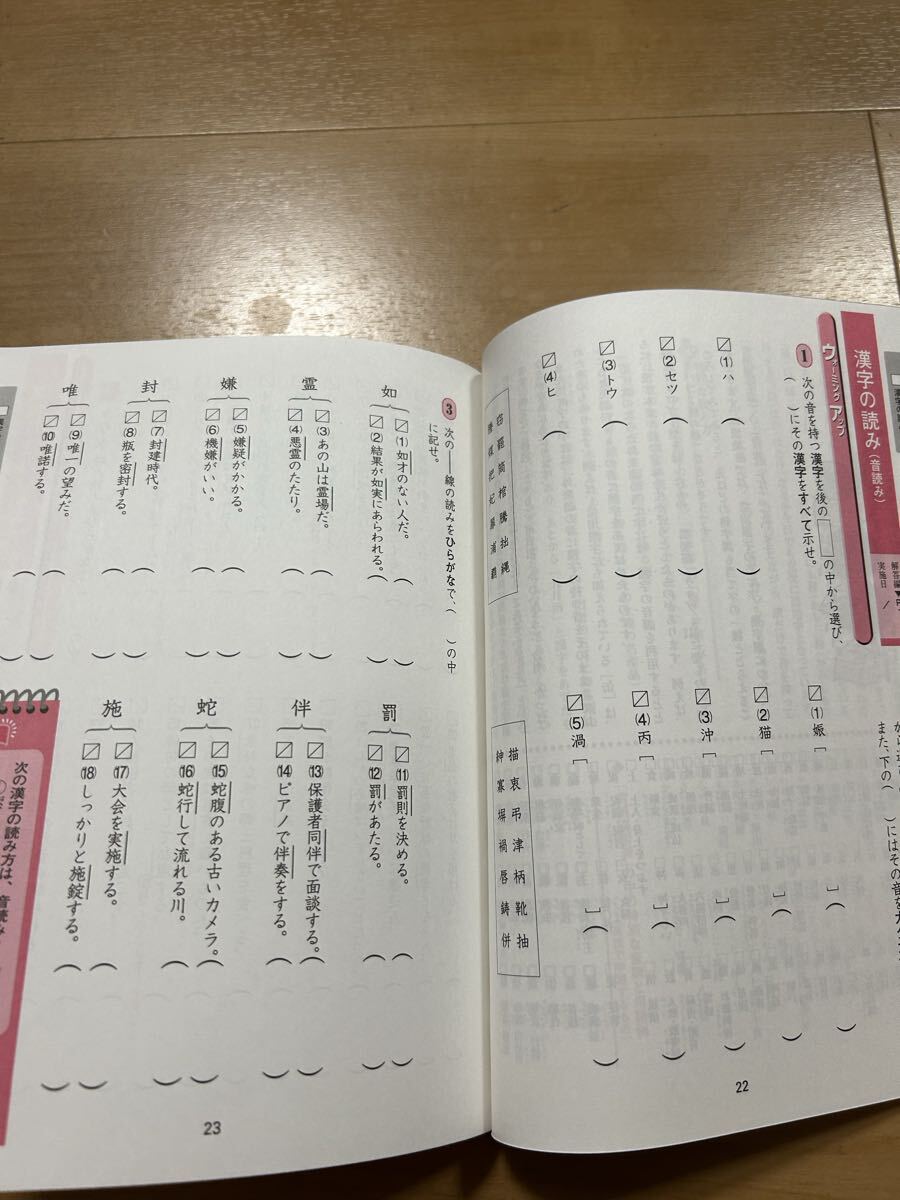 漢字の読み（音読み）
実施日 /
ウォーミングアップ
1 次の音を持つ漢字を後の□の中から選び、
（ ）にその漢字をすべて示せ。
(1)ハ（ ）
(2)セツ（ ）
(3)トウ（ ）
(4)ヒ（ ）
また、下の（
(1)娠［ ］（ ）
(2)猫［ ］（ ）
(3)沖［ ］（ ）
(4)丙［ ］（ ）
(5)渦［ ］（ ）
描 衷 弔 津 柄 靴 抽
紳 寡 塀 禍 唇 鋳 併
22
3 次の――線の読みをひらがなで、（ ）の中
に記せ。
如
(1)如才のない人だ。（ ）
(2)結果が如実にあらわれる。（ ）
霊
(3)あの山は霊場だ。（ ）
(4)悪霊のたたり。（ ）
嫌
(5)嫌疑がかかる。（ ）
(6)機嫌がいい。（ ）
封
(7)封建時代。（ ）
(8)瓶を密封する。（ ）
唯
(9)唯一の望みだ。（ ）
(10)唯諾する。（ ）
罰
(11)罰則を決める。（ ）
(12)罰があたる。（ ）
伴
(13)保護者同伴で面談する。（ ）
(14)ピアノで伴奏をする。（ ）
蛇
(15)蛇腹のある古いカメラ。（ ）
(16)蛇行して流れる川。（ ）
施
(17)大会を実施する。（ ）
(18)しっかりと施錠する。（ ）
次の漢字の読み方は、音読み
23